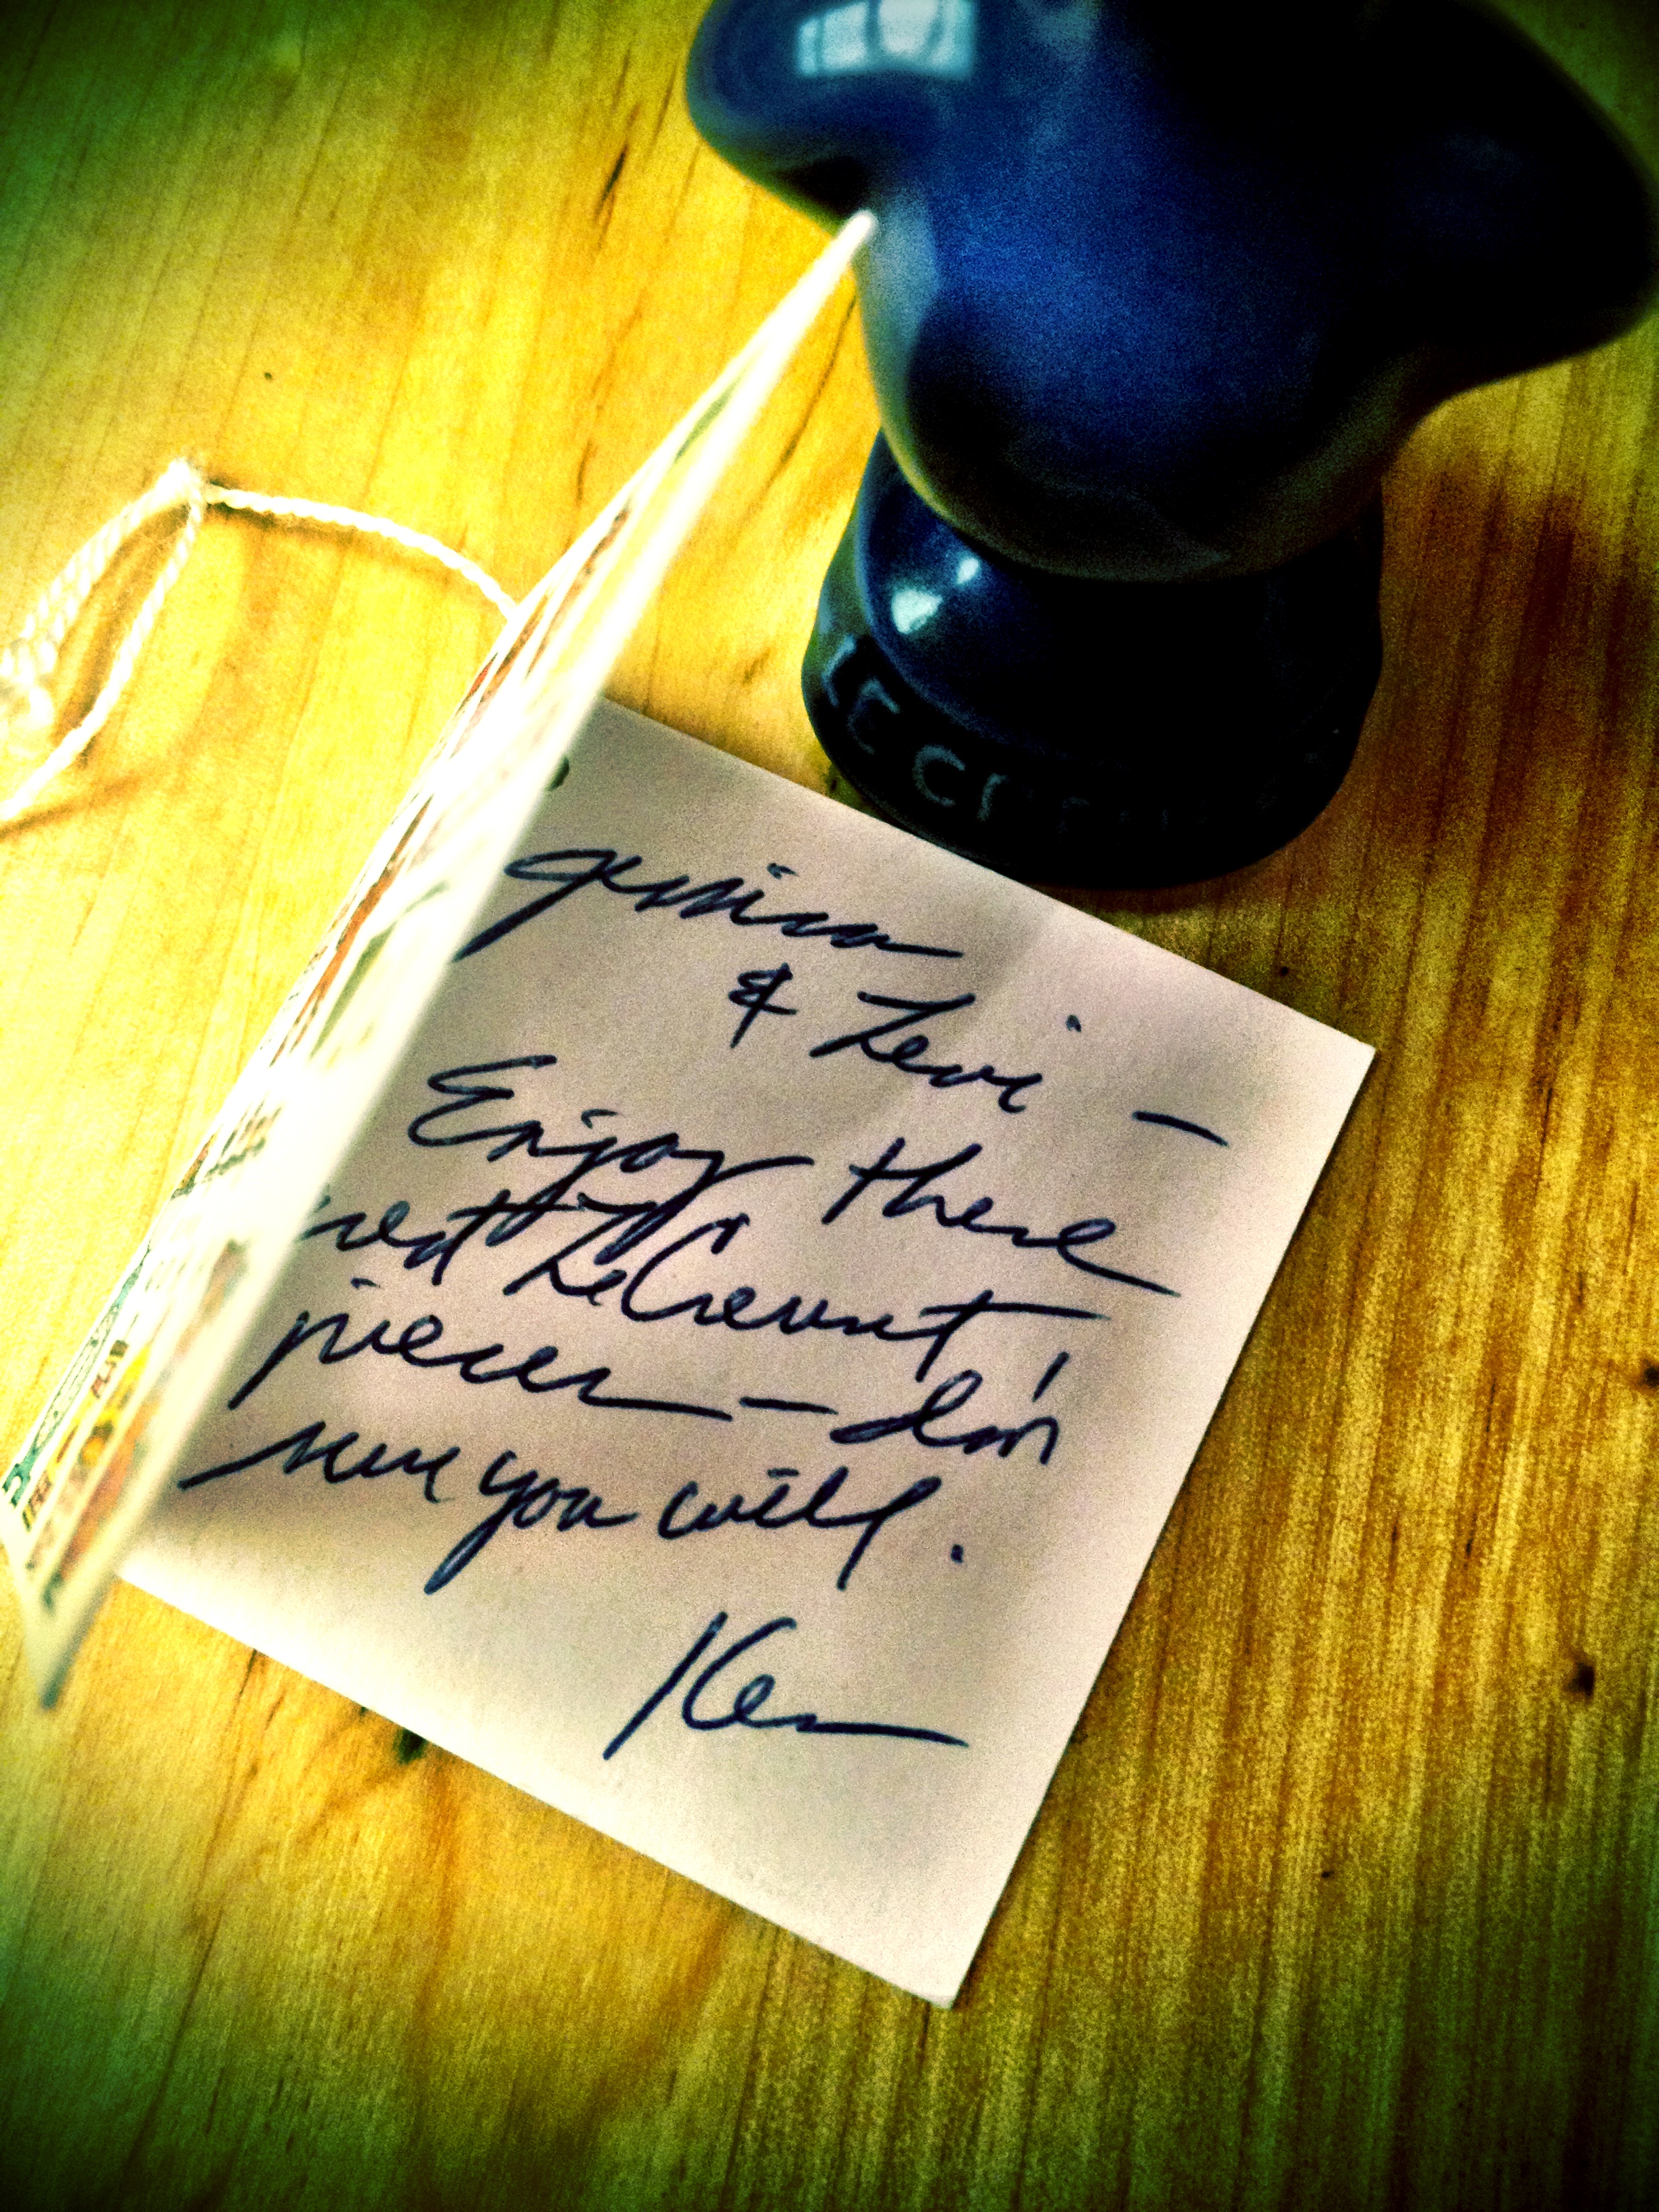 Jessica
& Levi —
Enjoy these
neat LeCreuset
pieces — I'm
sure you will.
Ken
LE CREUSET